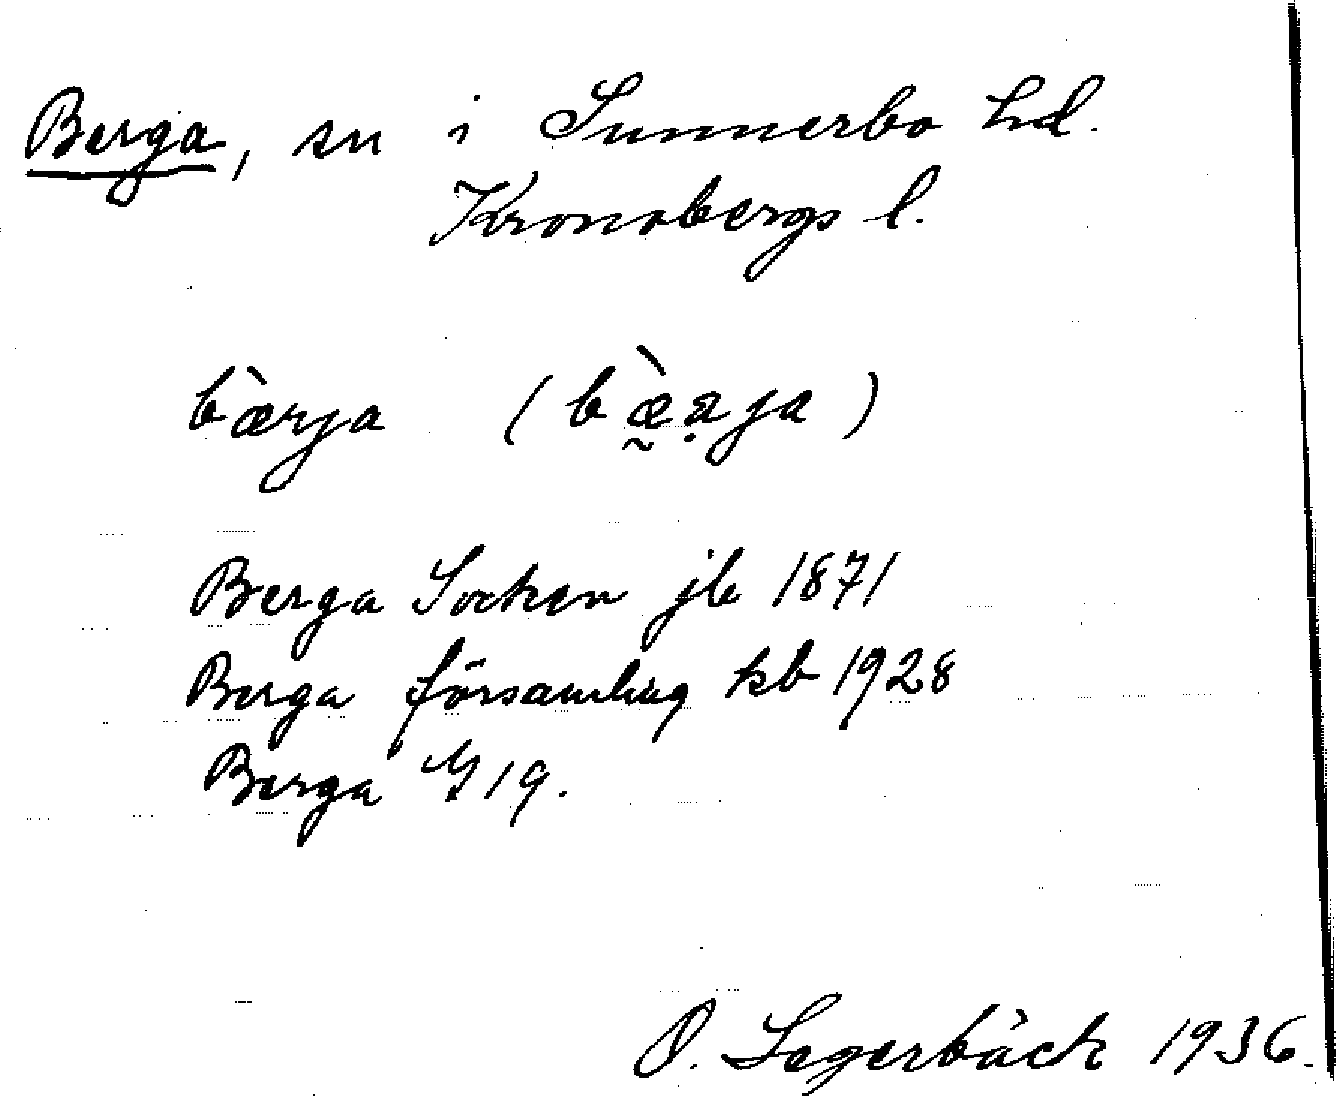 Berga, sn i Sunnerbo hd.
Kronobergs l.
bæ̀rja (bæ̰̀ạja)
Berga Socken jb 1871
Berga församling kb 1928
Berga G 19.
O. Segerbäck 1936